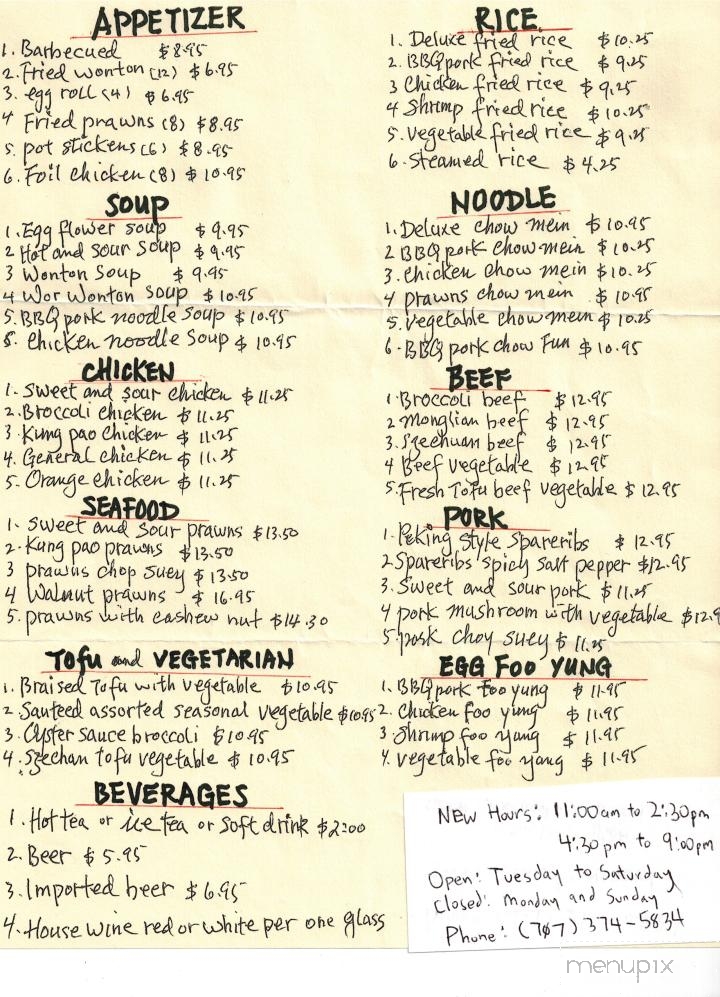 APPETIZER
1. Barbecued $8.95
2. Fried wonton (12) $6.95
3. egg roll (4) $6.95
4 Fried prawns (8) $8.95
5. pot stickens (6) $8.95
6. Foil chicken (8) $10.95
SOUP
1. Egg flower soup $9.95
2 Hot and sour soup $9.95
3 Wonton Soup $9.95
4 Wor Wonton Soup $10.95
5. BBQ pork noodle soup $10.95
6. chicken noodle soup $10.95
CHICKEN
1. Sweet and sour chicken $11.25
2. Broccoli chicken $11.25
3. Kung pao chicken $11.25
4. General chicken $11.25
5. Orange chicken $11.25
SEAFOOD
1. Sweet and sour prawns $13.50
2. Kung pao prawns $13.50
3 prawns chop suey $13.50
4 Walnut prawns $16.95
5. prawns with cashew nut $14.30
TOFU and VEGETARIAN
1. Braised Tofu with vegetable $10.95
2 Sauteed assorted seasonal vegetable $10.95
3. Oyster sauce broccoli $10.95
4. Szechan tofu vegetable $10.95
BEVERAGES
1. Hot tea or ice tea or soft drink $2.00
2. Beer $5.95
3. Imported beer $6.95
4. House wine red or white per one glass
RICE
1. Deluxe fried rice $10.25
2. BBQ pork fried rice $9.25
3 Chicken fried rice $9.25
4 Shrimp fried rice $10.25
5. vegetable fried rice $9.25
6. Steamed rice $4.25
NOODLE
1. Deluxe chow mein $10.95
2 BBQ pork chow mein $10.25
3. chicken chow mein $10.25
4 prawns chow mein $10.95
5. vegetable chow mein $10.25
6. BBQ pork chow Fun $10.95
BEEF
1. Broccoli beef $12.95
2 Monglian beef $12.95
3. Szechuan beef $12.95
4 Beef vegetable $12.95
5. Fresh Tofu beef vegetable $12.95
PORK
1. Peking Style Spareribs $12.95
2 Spareribs spicy salt pepper $12.95
3. Sweet and sour pork $11.25
4 pork mushroom with vegetable $12.9
5. pork choy suey $11.25
EGG FOO YUNG
1. BBQ pork Foo yung $11.95
2. Chicken foo yung $11.95
3. Shrimp foo yung $11.95
4. vegetable foo yang $11.95
New Hours: 11:00am to 2:30pm
4:30pm to 9:00pm
Open: Tuesday to Saturday
Closed: Monday and Sunday
Phone: (707) 374-5834
menupix